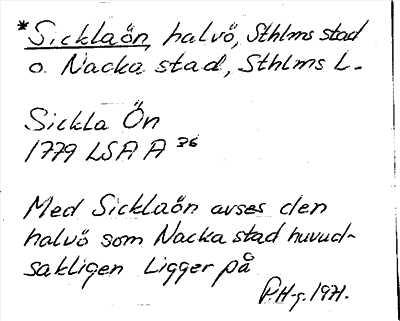 *Sicklaön, halvö, Sthlms stad
o. Nacka stad, Sthlms L.
Sickla Ön
1779 LSA A 36
Med Sicklaön avses den
halvö som Nacka stad huvud-
sakligen ligger på
PH-g. 1971.